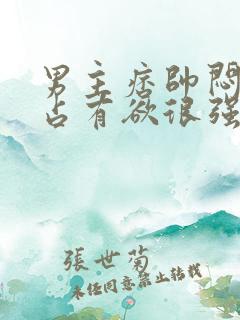 男主痞帅闷
占有欲很强
張世菊
未经同意禁止转载